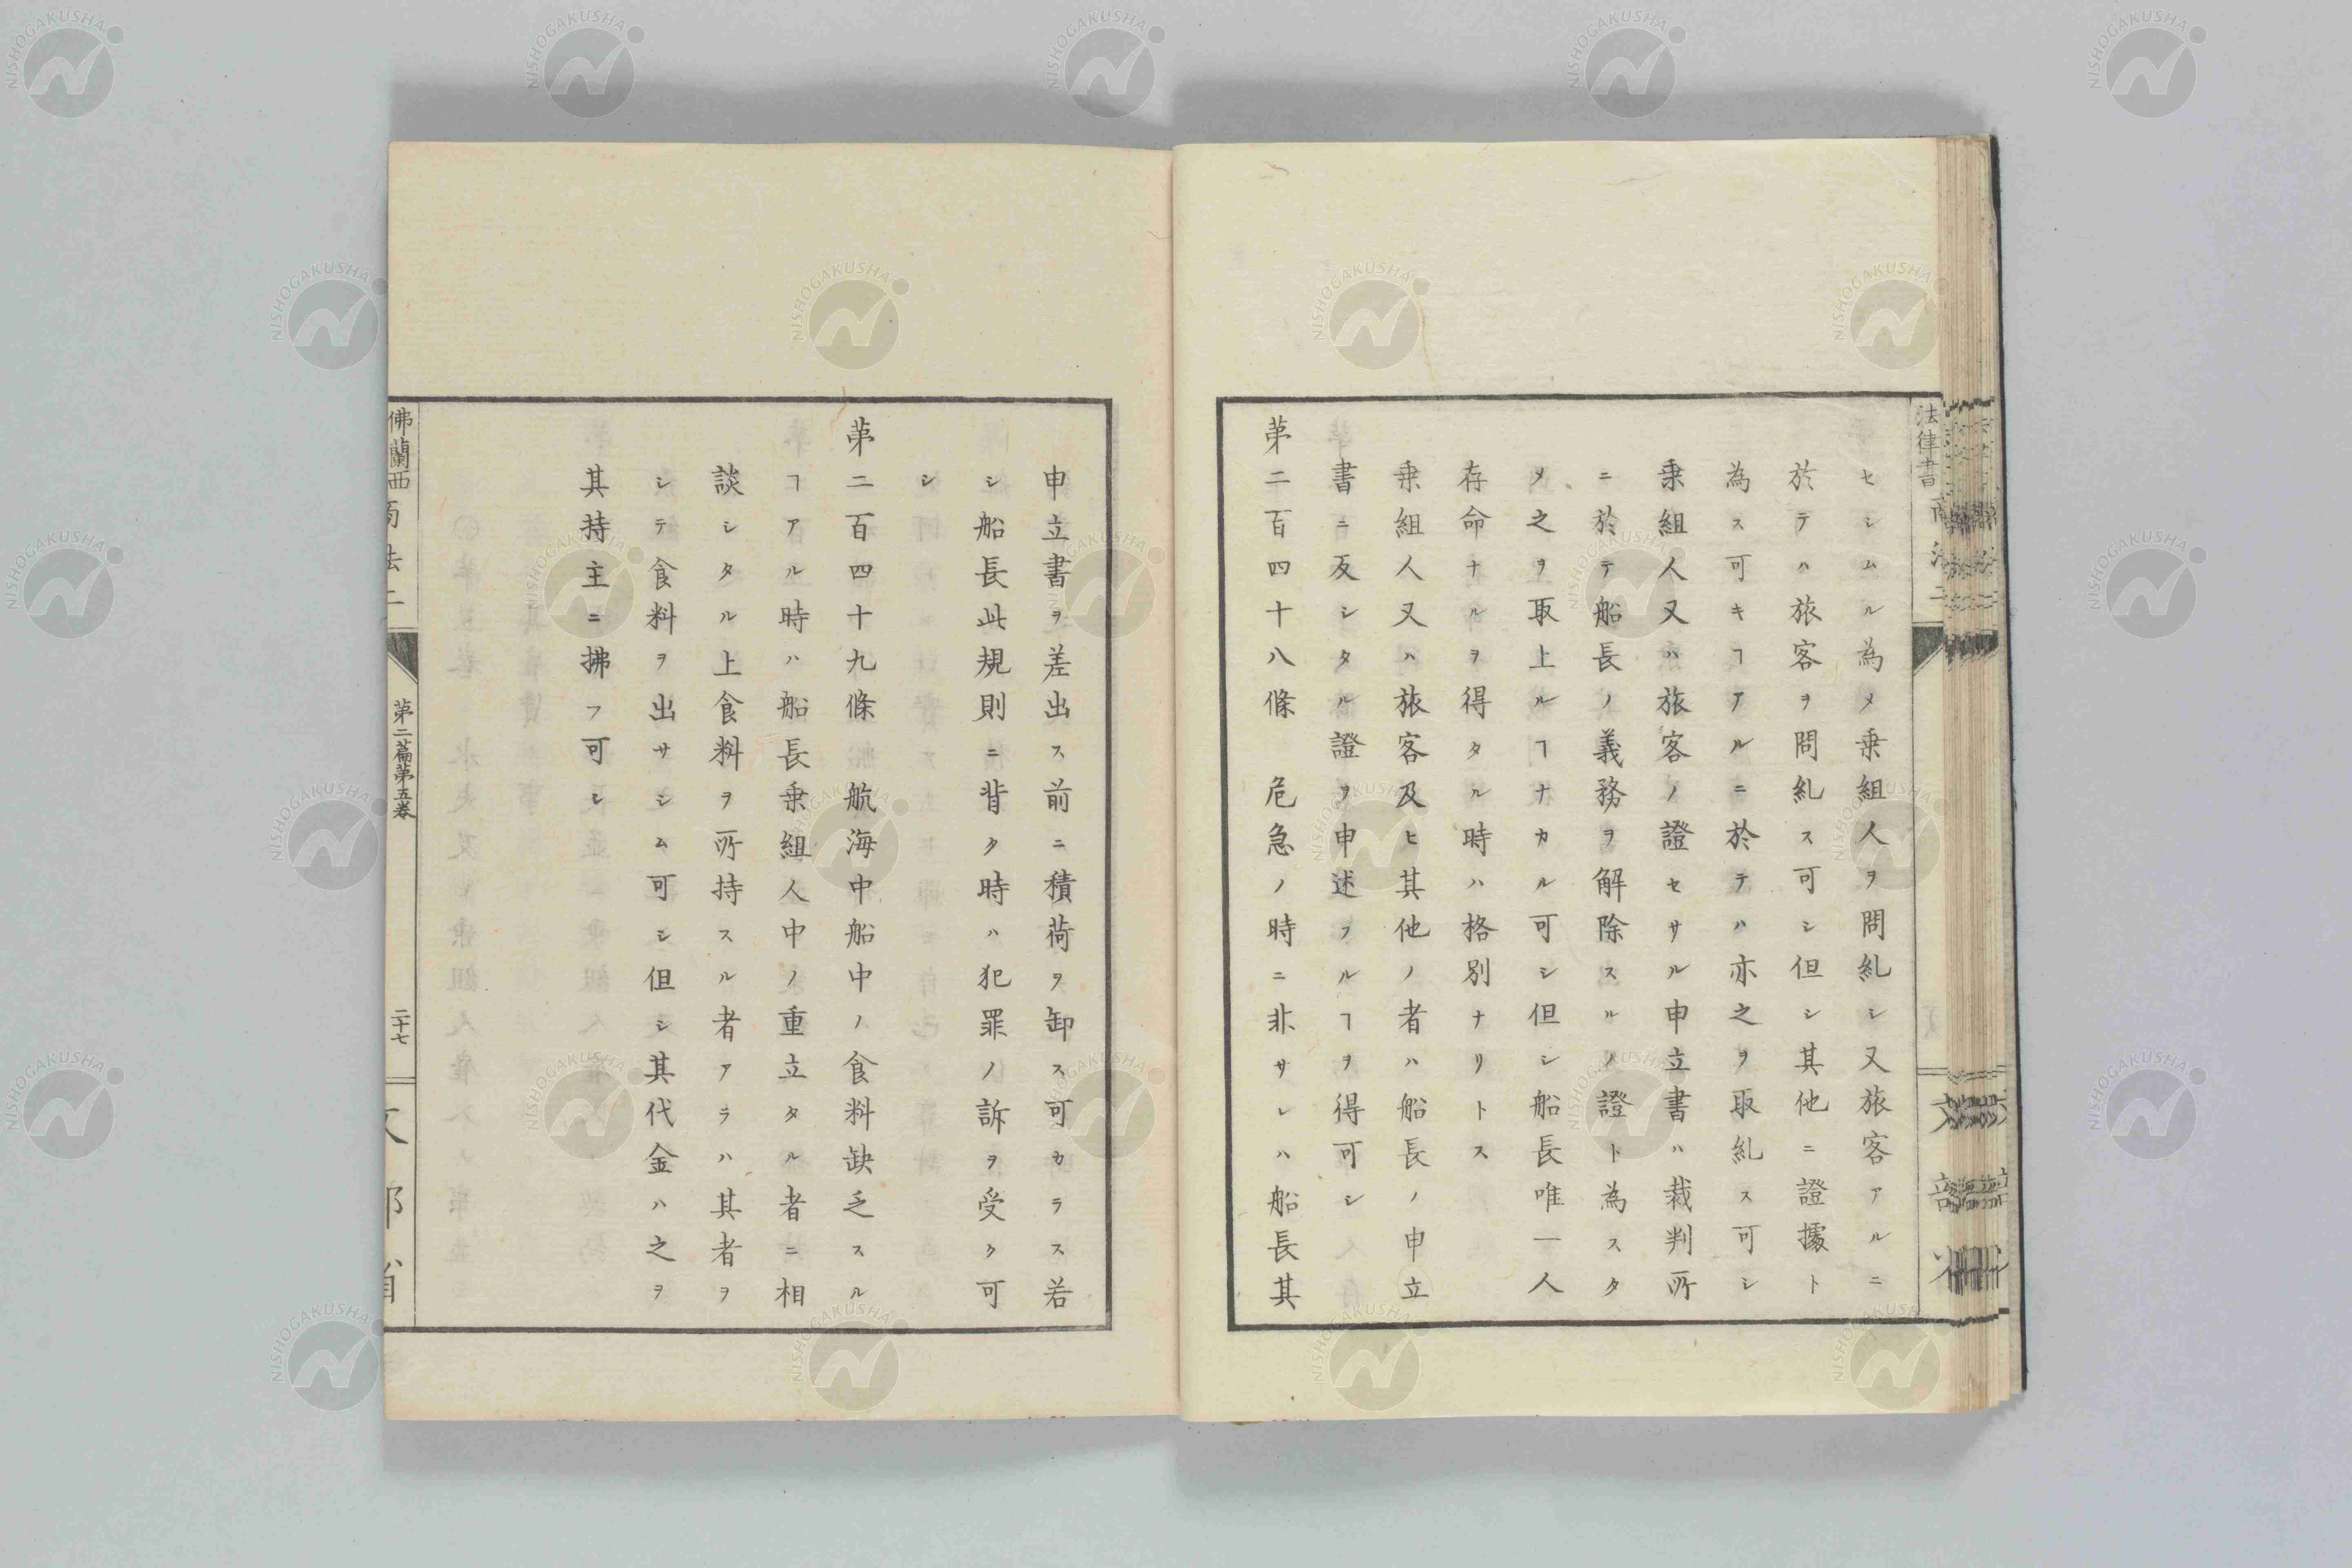 セシムル為メ乗組人ヲ問糺シ又旅客アルニ
於テハ旅客ヲ問糺ス可シ但シ其他ニ證據ト
為ス可キヿアルニ於テハ亦之ヲ取糺ス可シ
乗組人又ハ旅客ノ證セサル申立書ハ裁判所
ニ於テ船長ノ義務ヲ解除スルノ證ト為スタ
メ之ヲ取上ルヿナカル可シ但シ船長唯一人
存命ナルヲ得タル時ハ格別ナリトス
乗組人又ハ旅客及ヒ其他ノ者ハ船長ノ申立
書ニ反シタル證ヲ申述フルヿヲ得可シ
第二百四十八條 危急ノ時ニ非サレハ船長其
申立書ヲ差出ス前ニ積荷ヲ卸ス可カラス若
シ船長此規則ニ背ク時ハ犯罪ノ訴ヲ受ク可
シ
第二百四十九條 航海中船中ノ食料缺乏スル
ヿアル時ハ船長乗組人中ノ重立タル者ニ相
談シタル上食料ヲ所持スル者アラハ其者ヲ
シテ食料ヲ出サシム可シ但シ其代金ハ之ヲ
其持主ニ拂フ可シ
佛蘭西商法二
第二篇第五巻
二十七
文部省
法律書
NISHOGAKUSHA